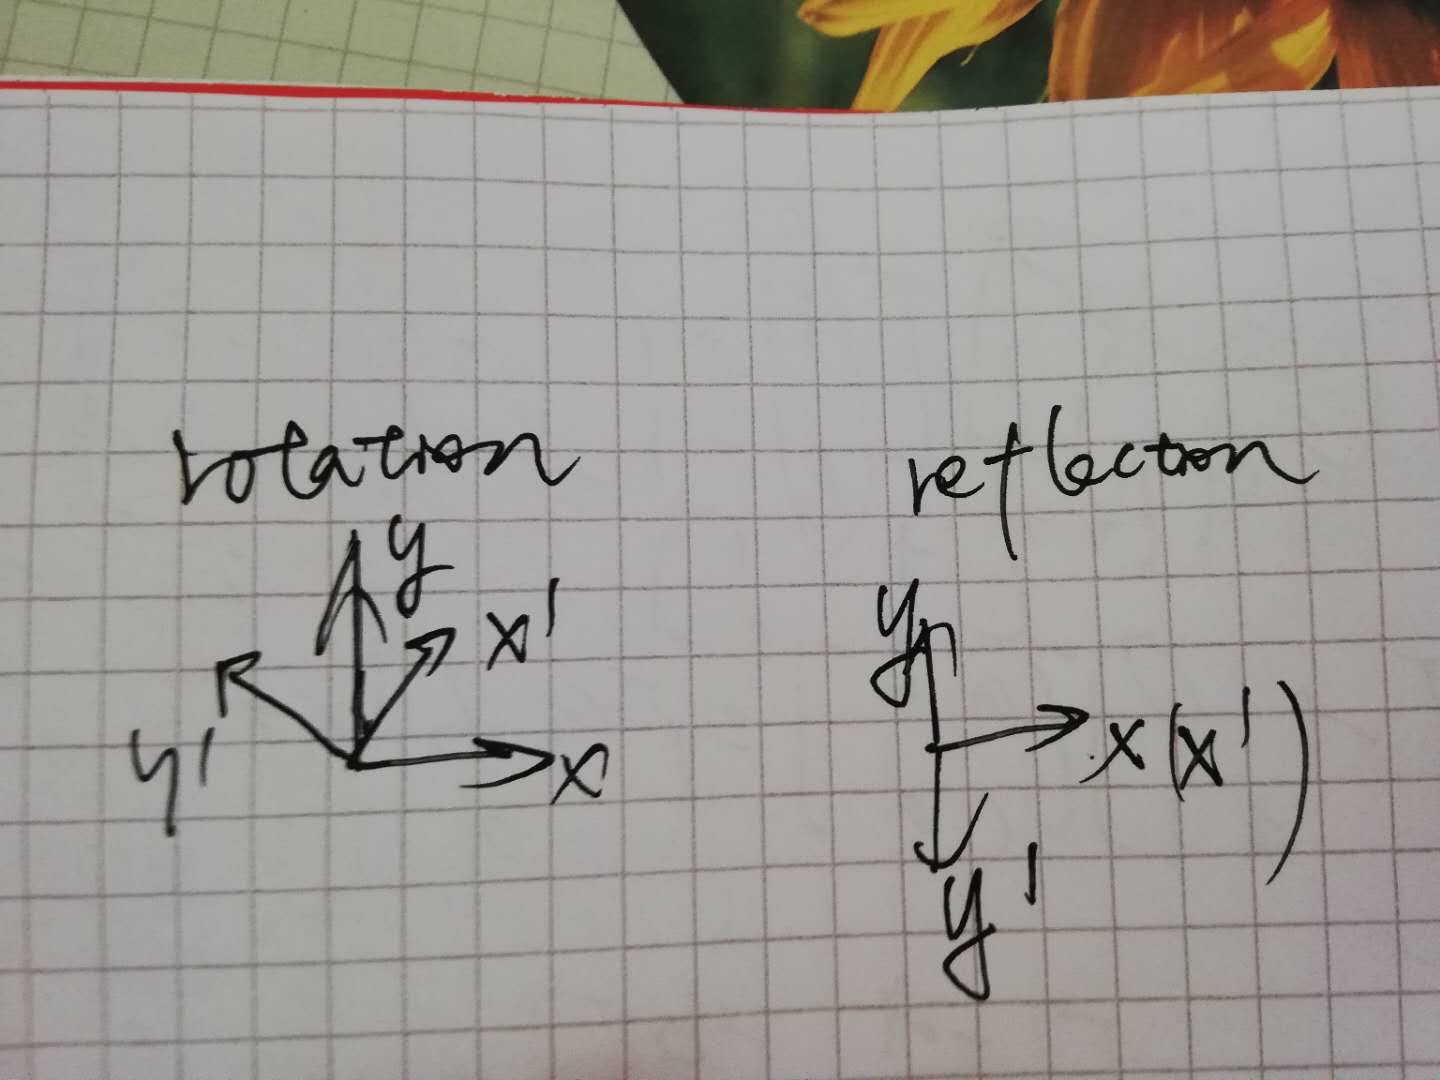 rotation
y
x'
y'
x
reflection
y
x (x')
y'